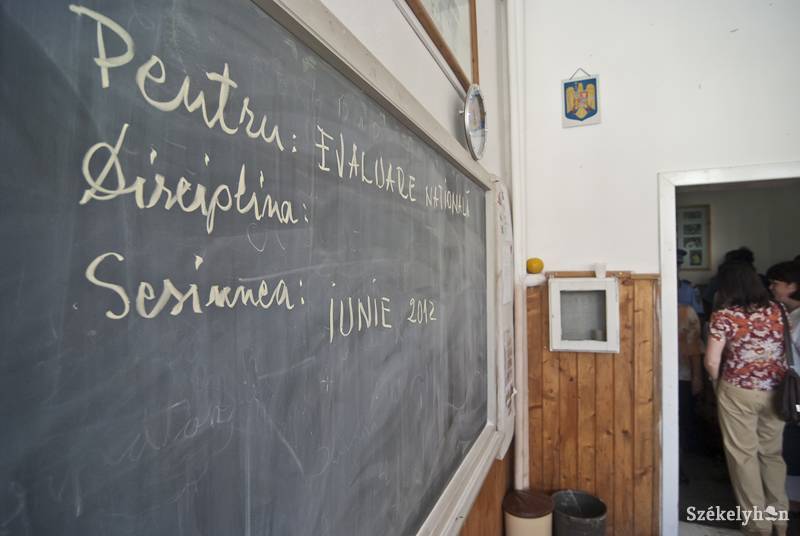 Pentru: EVALUARE NAȚIONALĂ
Disciplina:
Sesiunea: IUNIE 2012
Székelyhon